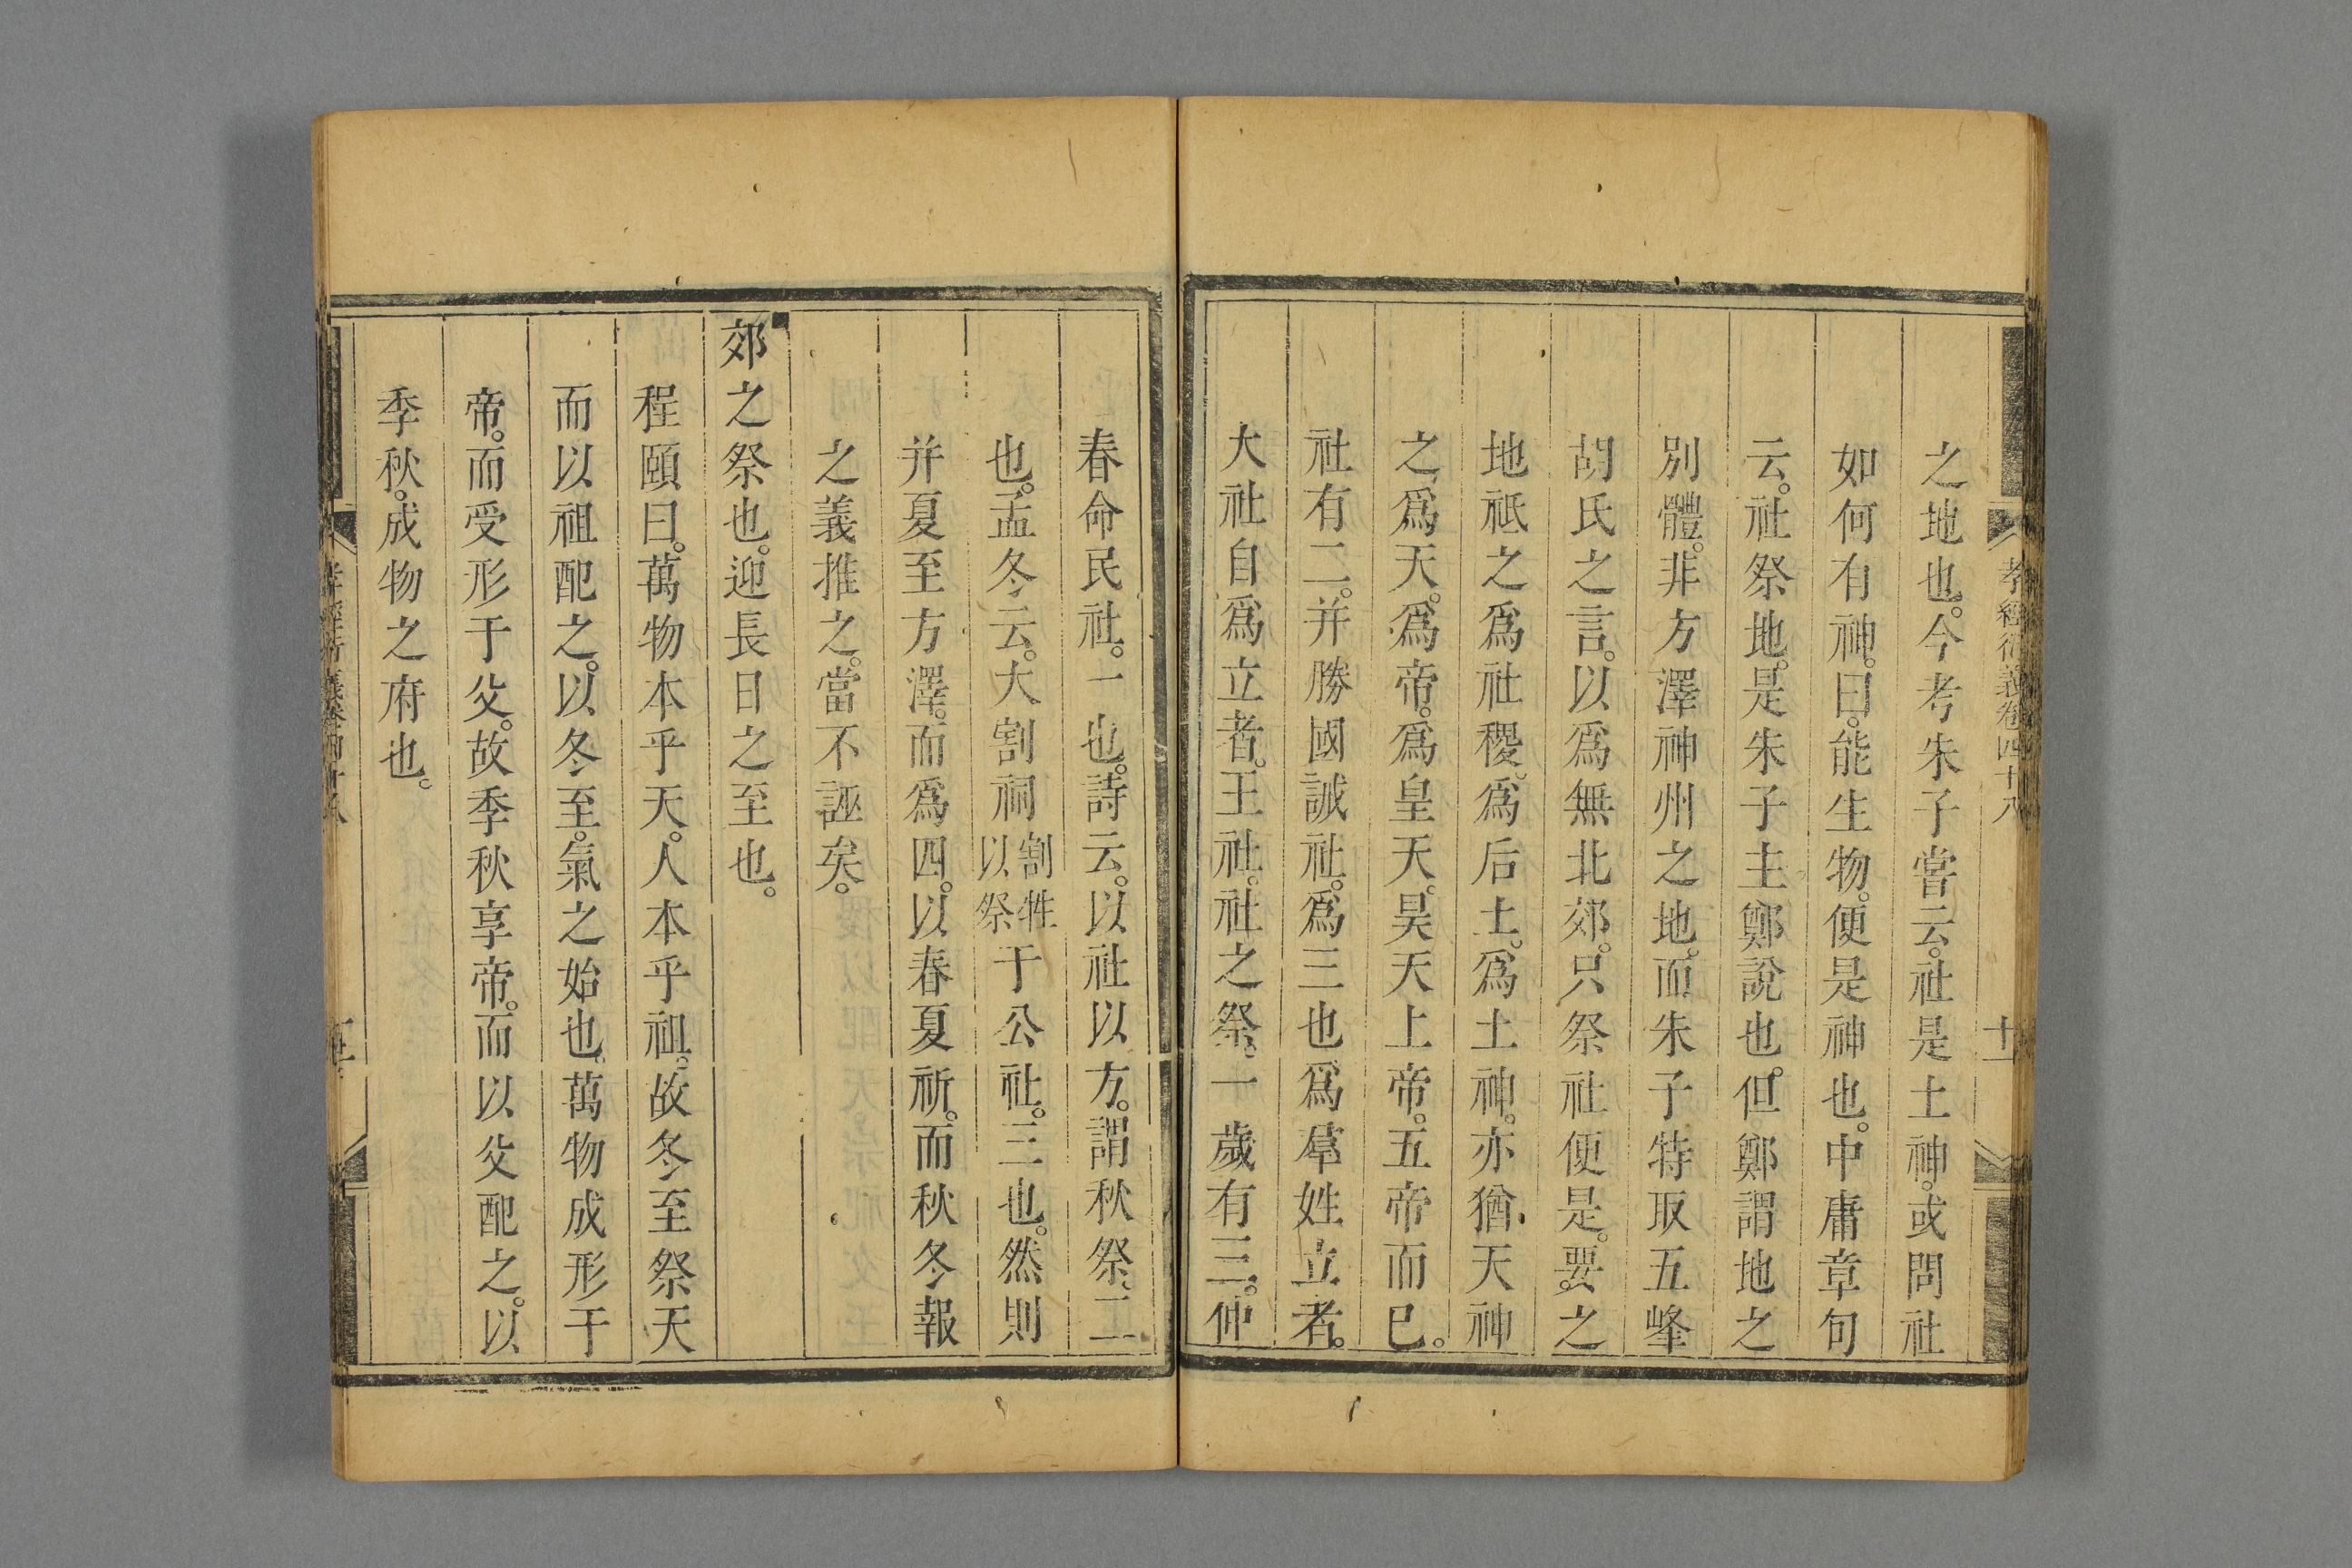 孝經衍義卷四十八
十一
之地也。今考朱子嘗云。社是土神。或問社
如何有神。曰。能生物。便是神也。中庸章句
云。社祭地。是朱子主鄭說也。但鄭謂地之
別體。非方澤神州之地。而朱子特取五峰
胡氏之言。以爲無北郊。只祭社便是。要之
地祗之爲社稷。爲后土。爲土神。亦猶天神
之爲天。爲帝。爲皇天。昊天上帝。五帝而已。
社有二。并勝國誡社。爲三也爲羣姓立者。
大社自爲立者。王社。社之祭。一歲有三。仲
春命民社。一也。詩云。以社以方。謂秋祭、二
也。孟冬云。大割祠割牲以祭于公社。三也。然則
并夏至方澤。而爲四。以春夏祈。而秋冬報
之義推之。當不誣矣。
郊之祭也。迎長日之至也。
程頤曰。萬物本乎天。人本乎祖。故冬至祭天
而以祖配之。以冬至。氣之始也。萬物成形于
帝。而受形于父。故季秋享帝。而以父配之。以
季秋。成物之府也。